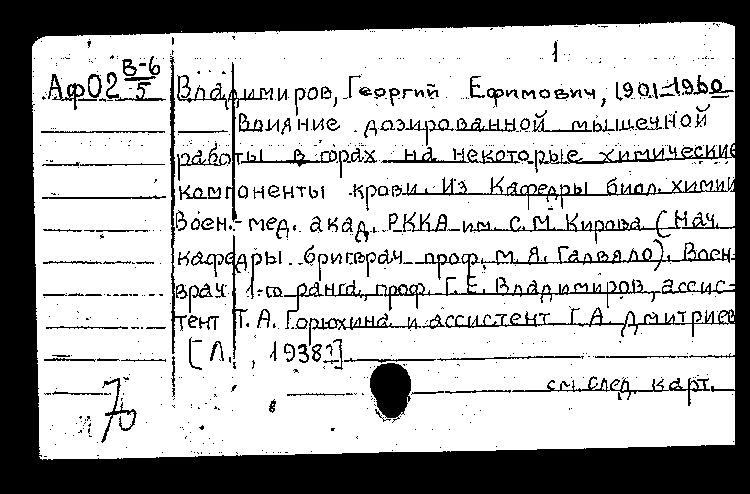 1
АфО2 В-6/5 Владимиров, Георгий Ефимович, 1901-1960
Влияние дозированной мышечной
работы в горах на некоторые химические
компоненты крови. Из Кафедры биол. химии
Воен.-мед. акад. РККА им. С.М. Кирова (Нач.
кафедры бригврач проф. М.Я. Галвяло). Воен-
врач 1-го ранга, проф. Г.Е. Владимиров, ассис-
тент Т.А. Горюхина и ассистент Г.А. Дмитриев
[Л., 1938?]
см. след. карт.